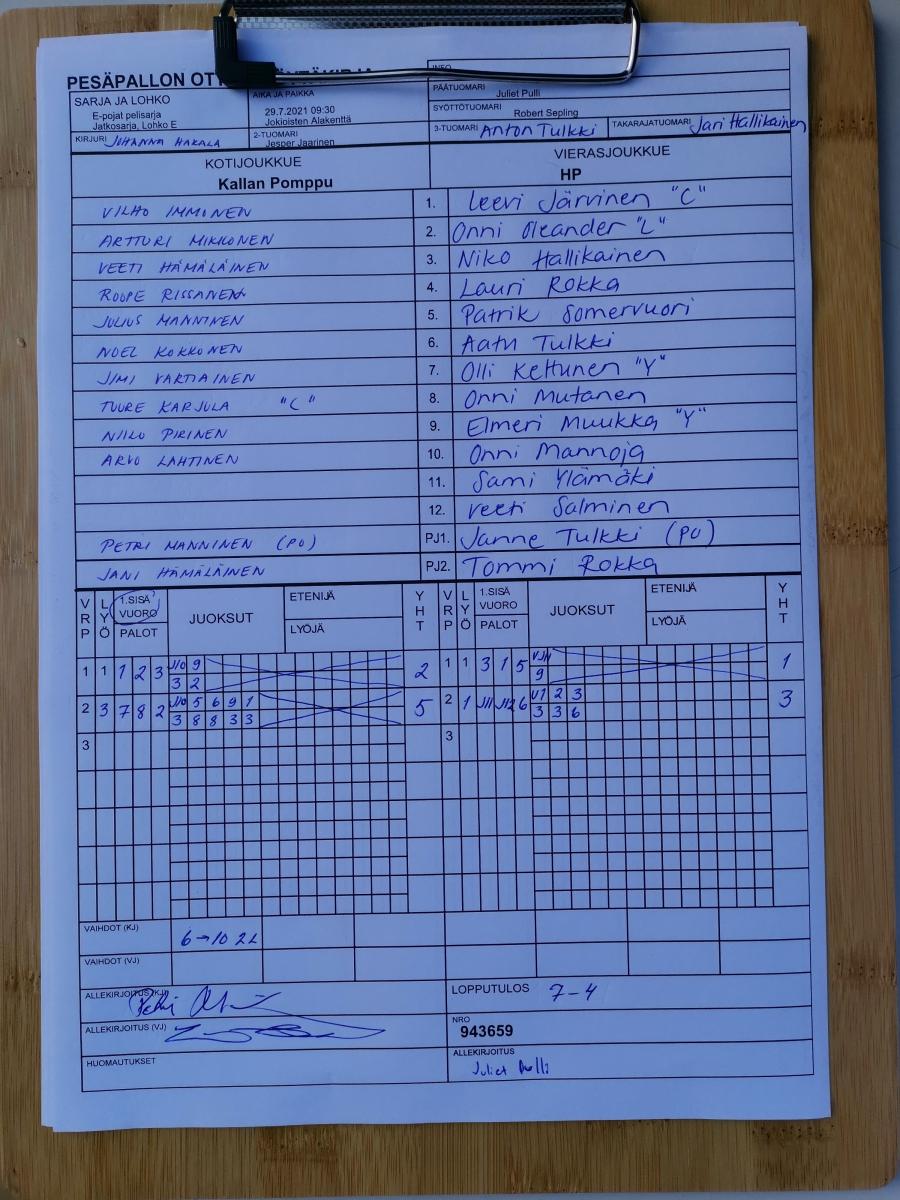 PESÄPALLON
INFO
SARJA JA LOHKO
E-pojat pelisarja
Jatkosarja, Lohko E
AIKA JA PAIKKA
29.7.2021 09:30
Jokioisten Alakenttä
PÄÄTUOMARI
Juliet Pulli
SYÖTTÖTUOMARI
Robert Sepling
KIRJURI JOHANNA HAKALA
2-TUOMARI
Jesper Jaarinen
3-TUOMARI Anton Tulkki
TAKARAJATUOMARI Jari Hallikainen
KOTIJOUKKUE
Kallan Pomppu
VIERASJOUKKUE
HP
VILHO IMMONEN 1. Leevi Järvinen "C"
ARTTURI MIKKONEN 2. Onni Oleander "L"
VEETI HÄMÄLÄINEN 3. Niko Hallikainen
ROOPE RISSANEN 4. Lauri Rokka
JULIUS MANNINEN 5. Patrik Somervuori
NOEL KOKKONEN 6. Aatu Tulkki
JIMI VARTIAINEN 7. Olli Kettunen "Y"
TUURE KARJULA "C" 8. Onni Mutanen
NIILO PIRINEN 9. Elmeri Muukka "Y"
ARVO LAHTINEN 10. Onni Mannoja
11. Sami Ylämäki
12. Veeti Salminen
PETRI MANNINEN (PO) PJ1. Janne Tulkki (PO)
JANI HÄMÄLÄINEN PJ2. Tommi Rokka
VRP LYÖ 1.SISÄ VUORO PALOT JUOKSUT ETENIJÄ LYÖJÄ YHT VRP LYÖ 1.SISÄ VUORO PALOT JUOKSUT ETENIJÄ LYÖJÄ YHT
1 1 1 2 3 J10 9 2 1 1 3 1 5 VJ11 1
3 2 9
2 3 7 8 2 J10 5 6 9 1 5 2 1 J11 J12 6 V1 2 3 3
3 8 8 3 3 3 3 6
3 3
VAIHDOT (KJ) 6→10 2L
VAIHDOT (VJ)
ALLEKIRJOITUS (KJ)
LOPPUTULOS 7-4
ALLEKIRJOITUS (VJ)
NRO
943659
HUOMAUTUKSET
ALLEKIRJOITUS
Juliet Pulli